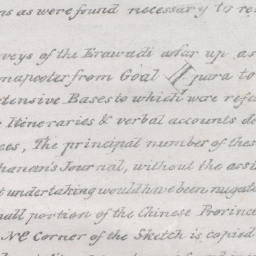 ns as were found necessary to re
rveys of the Erawadi as far up as
mapooter from Góal para to
xtensive Bases to which were refe
Itineraries & verbal accounts de
ces, The principal number of thes
hanan's Journal, without the assi
t undertaking would have been nugato
mall portion of the Chinese Province
NE Corner of the Sketch is copied